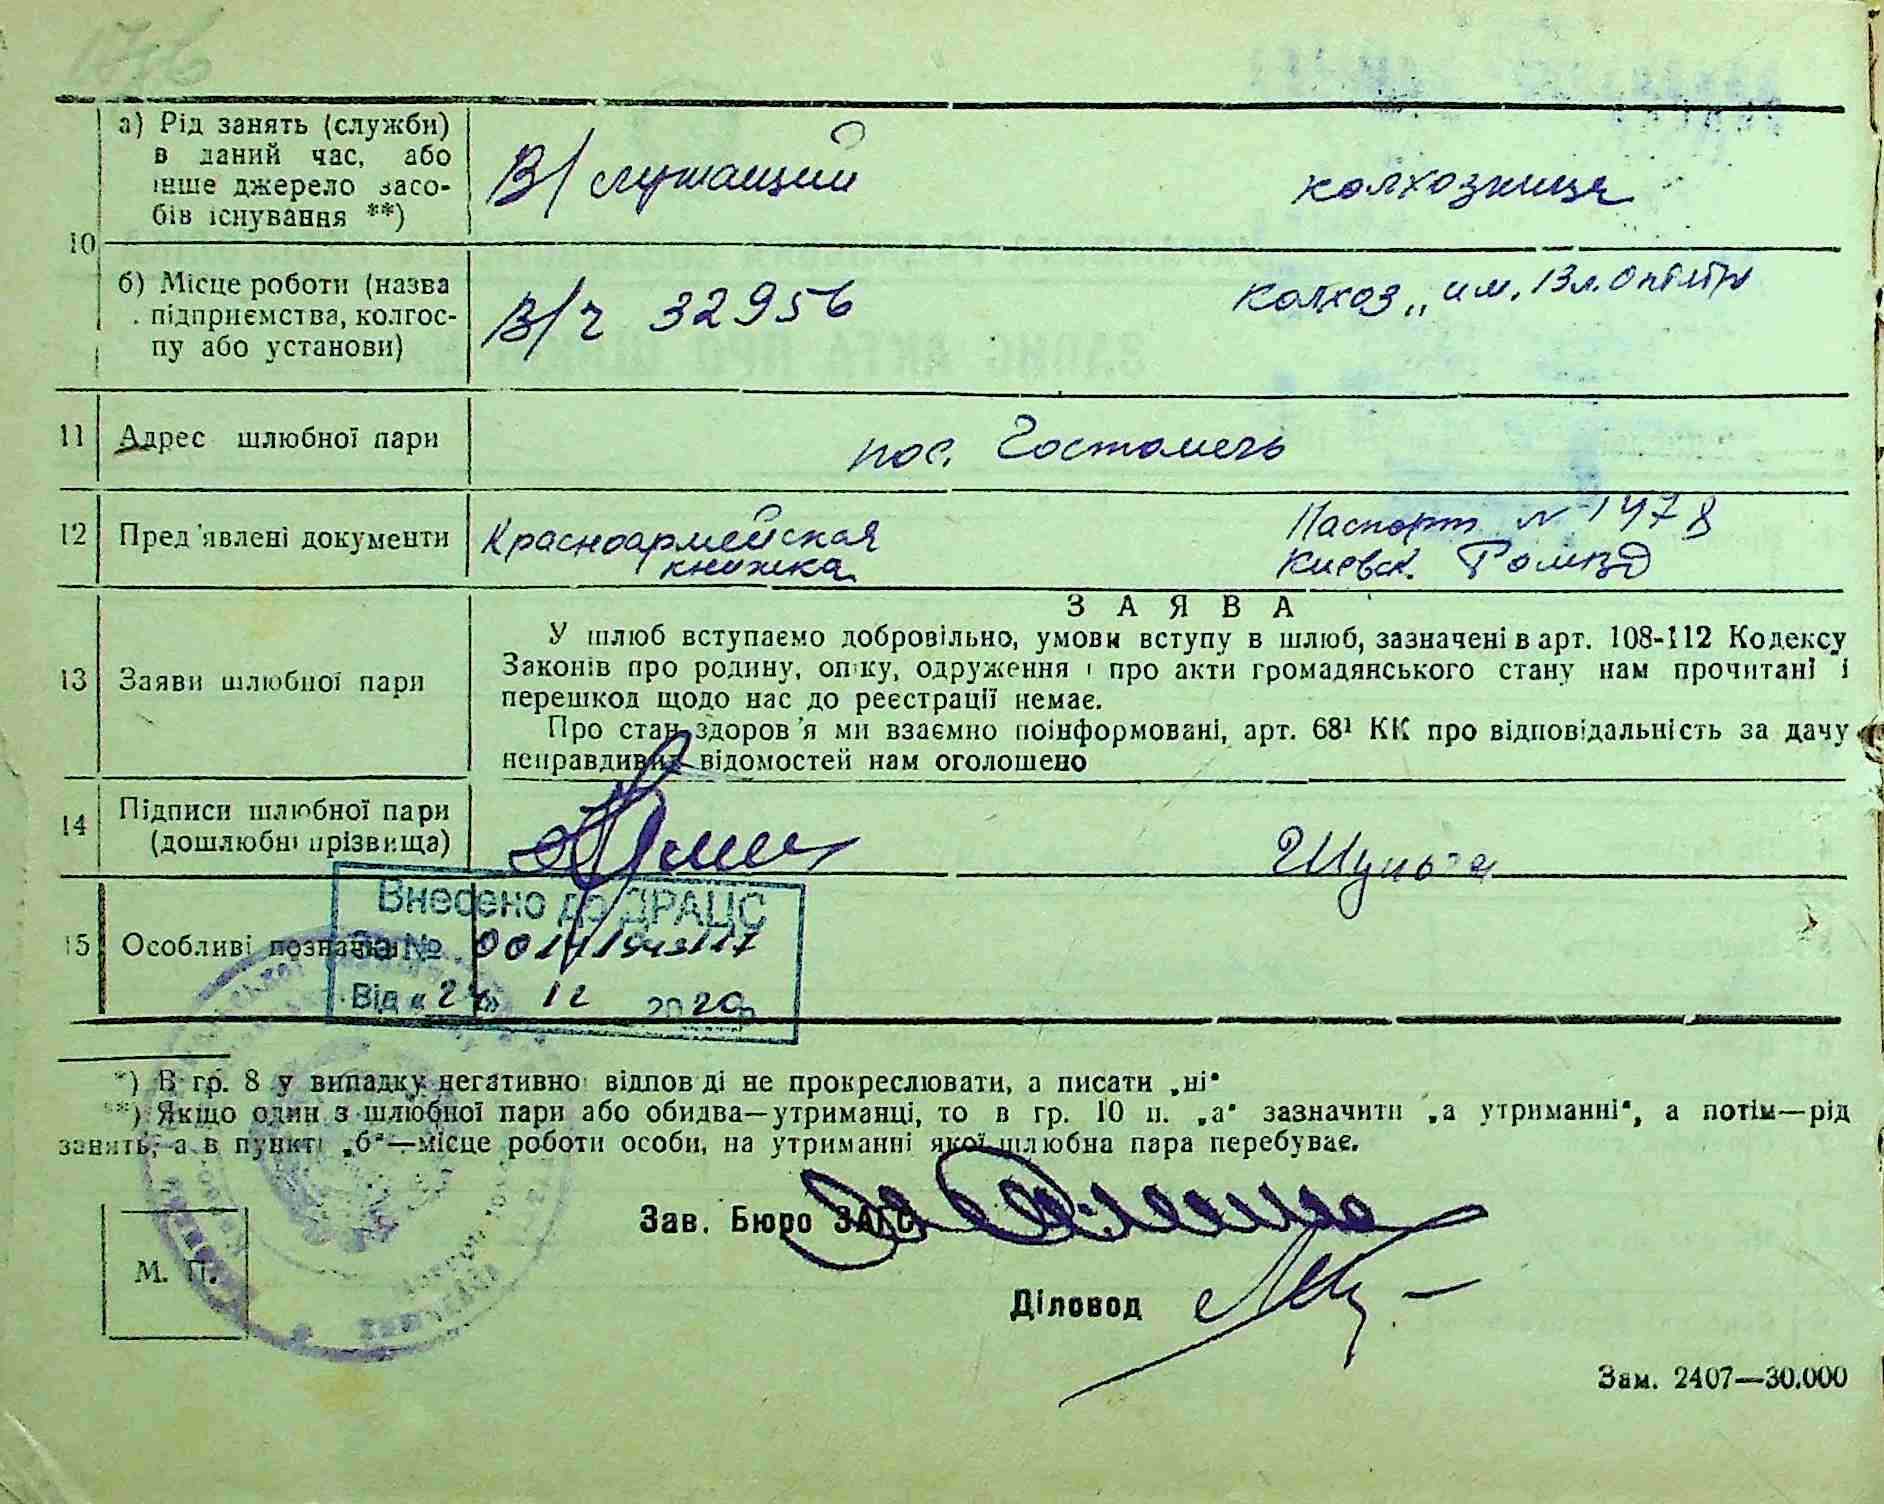 а) Рід занять (служби)
в даний час, або
інше джерело засо-
бів існування **)
В/служащий
колхозница
10
б) Місце роботи (назва
підприємства, колгос-
пу або установи)
В/ч 32956
Колхоз „им.
11 Адрес шлюбної пари
пос. Гостомель
12 Пред'явлені документи
Красноармейская
книжка
Паспорт № 1478
Киевск.
13 Заяви шлюбної пари
ЗАЯВА
У шлюб вступаємо добровільно, умови вступу в шлюб, зазначені в арт. 108-112 Кодексу
Законів про родину, опіку, одруження і про акти громадянського стану нам прочитані і
перешкод щодо нас до реєстрації немає.
Про стан здоров'я ми взаємно поінформовані, арт. 68¹ КК про відповідальність за дачу
неправдивих відомостей нам оголошено
14 Підписи шлюбної пари
(дошлюбні прізвища)
Шульга
15 Особливі позначки
Внесено до ДРАЦС
За №
Від « 24 » 12 2020р
*) В гр. 8 у випадку негативної відповіді не прокреслювати, а писати „ні“
**) Якщо один з шлюбної пари або обидва—утриманці, то в гр. 10 п. „а“ зазначити „а утриманні“, а потім—рід
занять, а в пункті „б“—місце роботи особи, на утриманні якої шлюбна пара перебуває.
Зав. Бюро ЗАГС
М. П.
Діловод
Зам. 2407—30.000